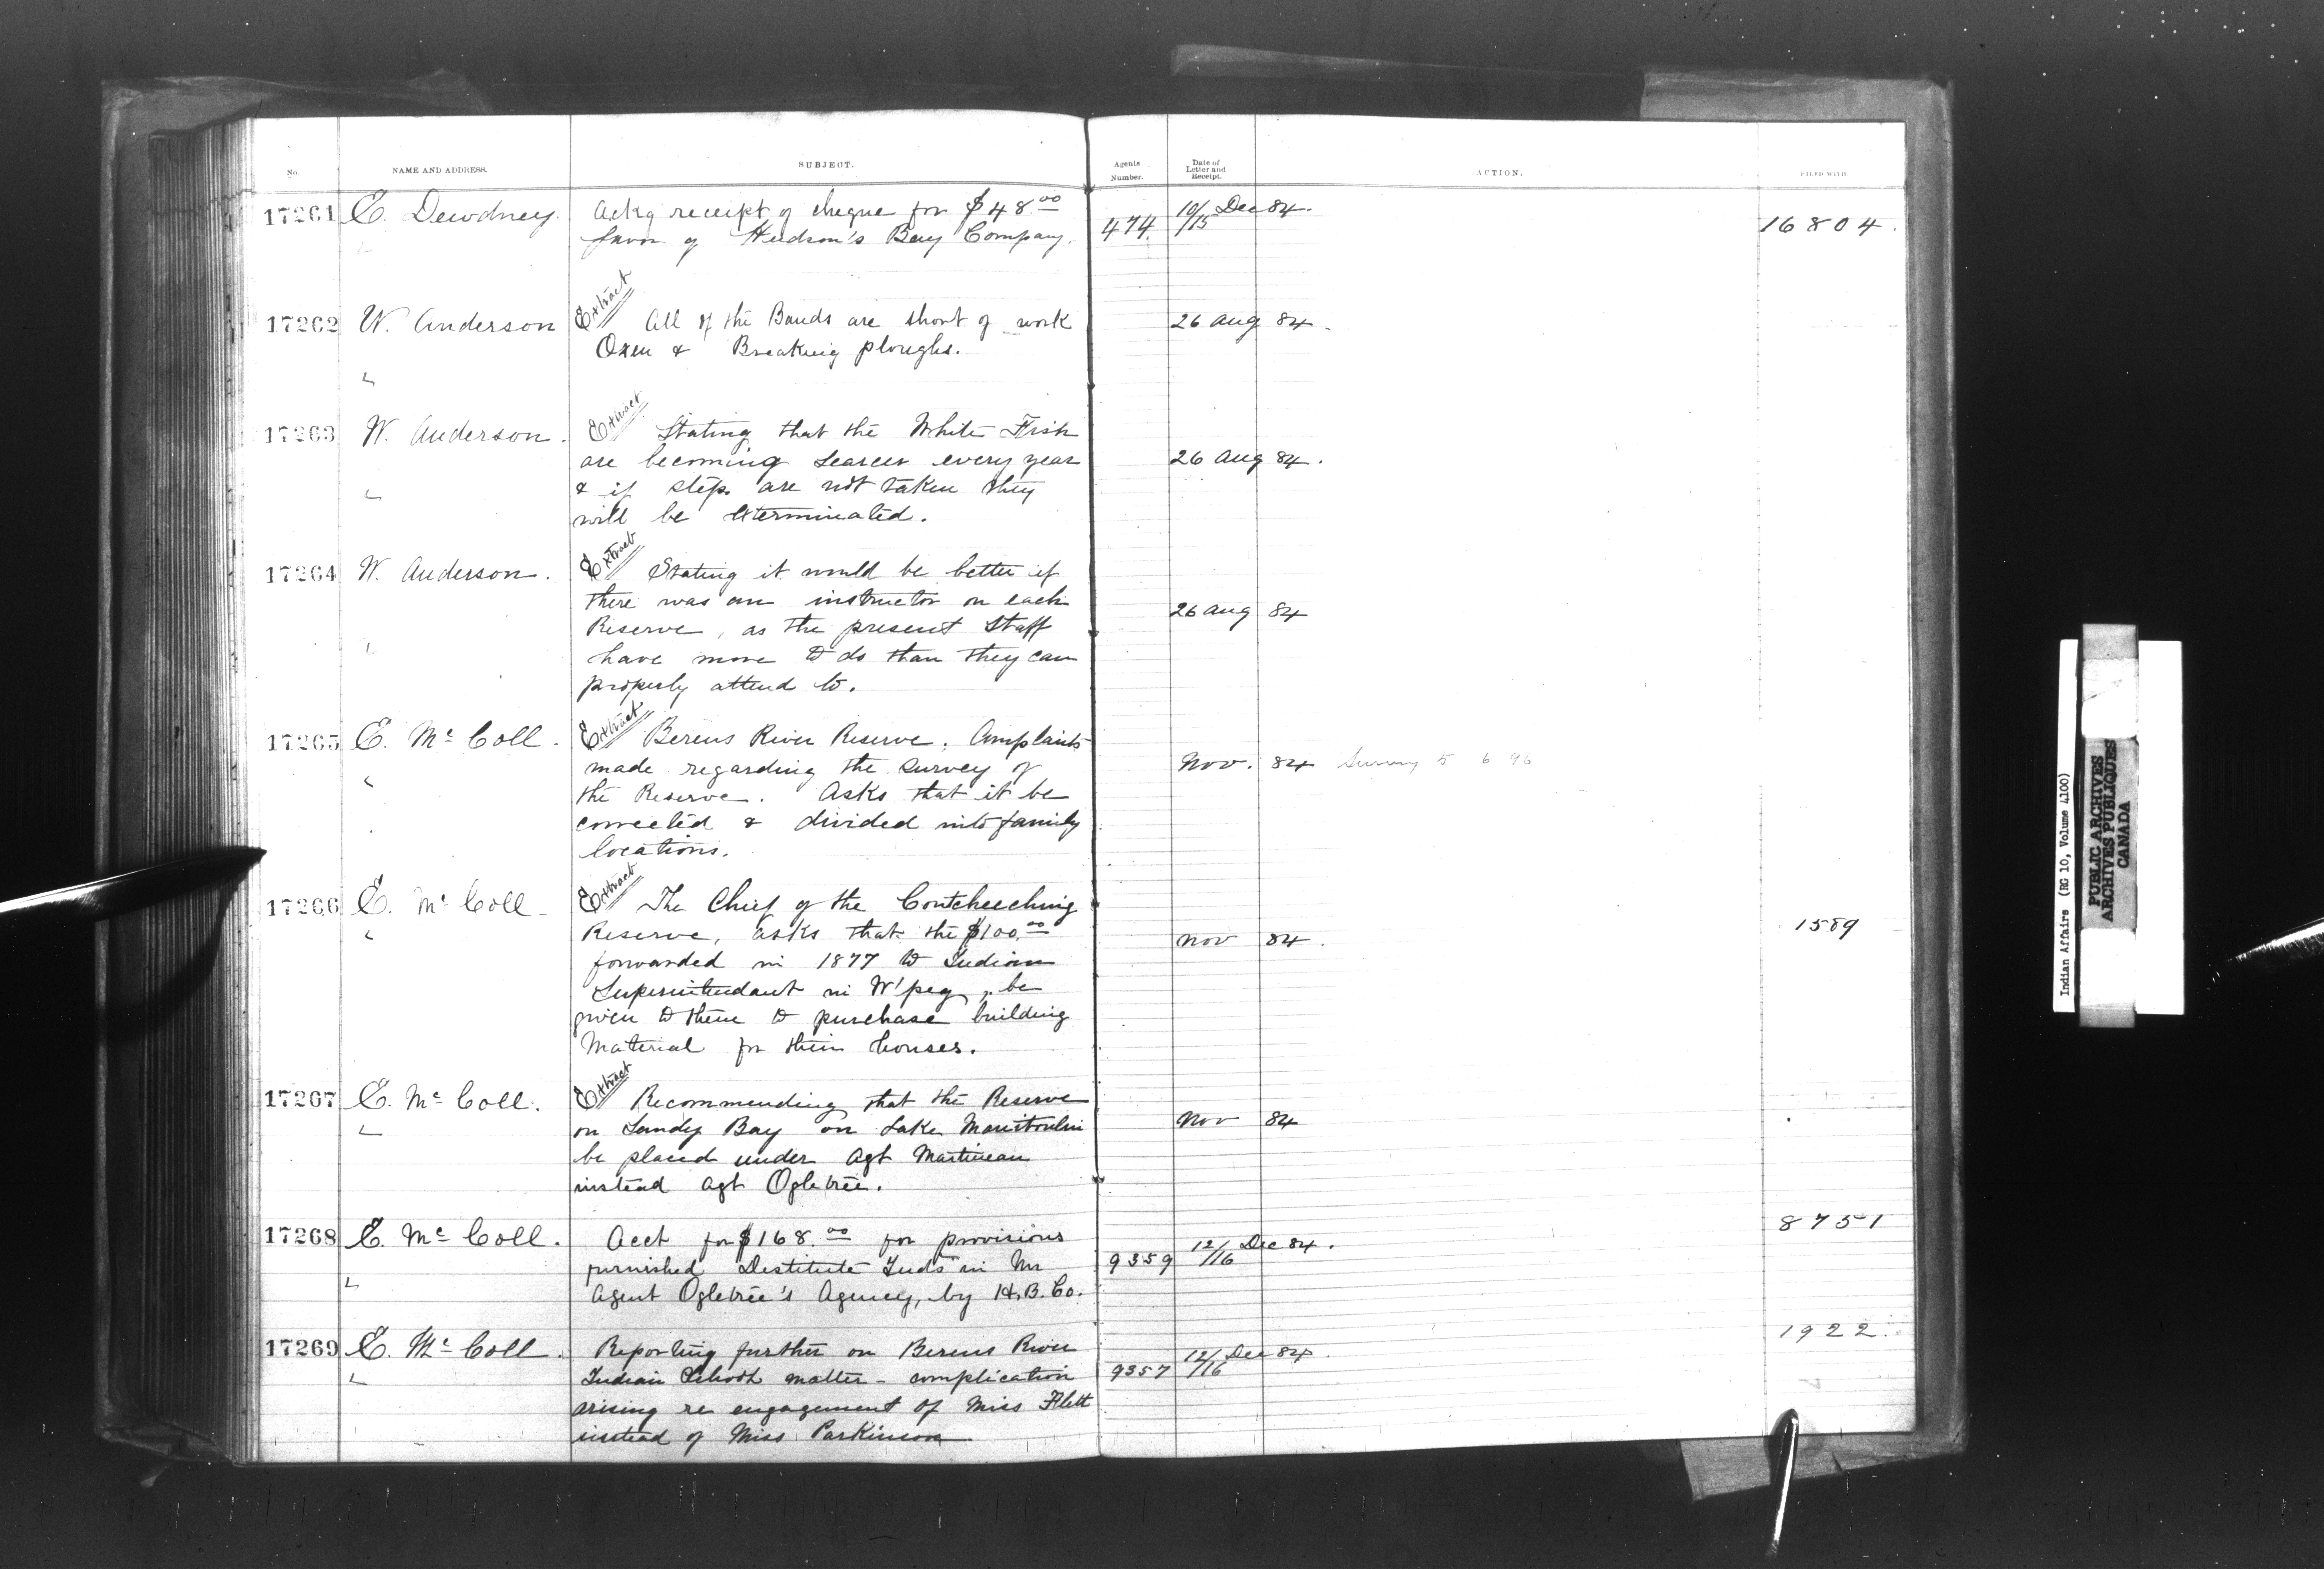 No.
NAME AND ADDRESS.
SUBJECT.
Agents Number.
Date of Letter and Receipt.
ACTION.
FILED WITH
17261 E. Dewdney. Ackg receipt of cheque for $48.00 10/15 Dec 84.
favor of Hudson's Bay Company. 474. 16804.
Extract
17262 W. Anderson All of the Bands are short of work 26 Aug 84.
Oxen & Breaking ploughs.
"
Extract
17263 W. Anderson. Stating that the White Fish
are becoming scarcer every year 26 Aug 84.
" & if steps are not taken they
will be exterminated.
Extract
17264 W. Anderson. Stating it would be better if
there was an instructor on each 26 Aug 84
Reserve, as the present Staff
" have more to do than they can
properly attend to.
Extract
17265 E. McColl. Berens River Reserve. Complaints
made regarding the survey of Nov. 84 Survey 5 6 96
" the Reserve. Asks that it be
corrected & divided into family
locations.
Extract
17266 E. McColl The Chief of the Coutcheeching 1589
" Reserve, asks that the $100.00 Nov 84.
forwarded in 1877 to Indian
Superintendant in W'peg, be
given to them to purchase building
Material for their houses.
Extract
17267 E. McColl. Recommending that the Reserve
" on Sandy Bay on Lake Manitoulin Nov 84
be placed under Agt Martineau
instead Agt Ogletree.
17268 E. McColl. Acct for $168.00 for provisions 8751
furnished Destitute Inds in Mr 9359 12/16 Dec 84.
" Agent Ogletree's Agency, by H.B. Co.
17269 E. McColl. Reporting further on Berens River 1922.
" Indian School matter - complication 9357 12/16 Dec 84.
arising re engagement of Miss Flett
instead of Miss Parkinson
Indian Affairs (RG 10, Volume 4100)
PUBLIC ARCHIVES
ARCHIVES PUBLIQUES
CANADA